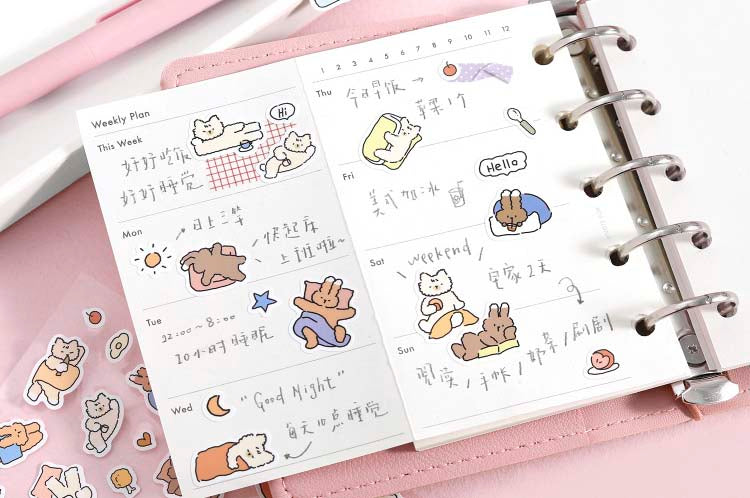 Weekly Plan
This Week
Hi
好好吃饭
好好睡觉
Mon
日上三竿
快起床
上班啦~
Tue
22:00~8:00
10小时睡眠
Wed
"Good Night"
每天10点睡觉
1 2 3 4 5 6 7 8 9 10 11 12
Thu
今日早饭
苹果1个
Fri
Hello
美式加冰
Sat
weekend
宅家2天
Sun
阅读/手帐/奶茶/刷剧